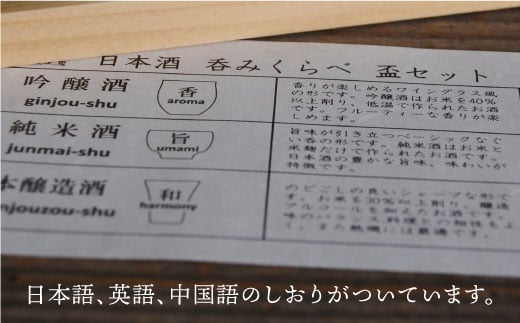 日本酒 呑みくらべ 盃セット
吟醸酒
ginjou-shu
香
aroma
香りが楽しめるワイングラス風
の形です。吟醸酒はお米を40%
以上削り、低温で作られたお酒
です。フルーティーな香りが楽
しめます。
純米酒
junmai-shu
旨
umami
旨味が引き立つベーシックなぐ
い呑の形です。純米酒はお米と
米麹だけで作られたお酒です。
日本酒の豊かな旨味、味わいが
特徴です。
本醸造酒
njouzou-shu
和
harmony
のどごしの良いシャープな形で
す。お米を30%以上削り、醸造
アルコールを加えたお酒です。
味のバランス、料理との相性もよ
く、また熱燗には最適です。
日本語、英語、中国語のしおりがついています。